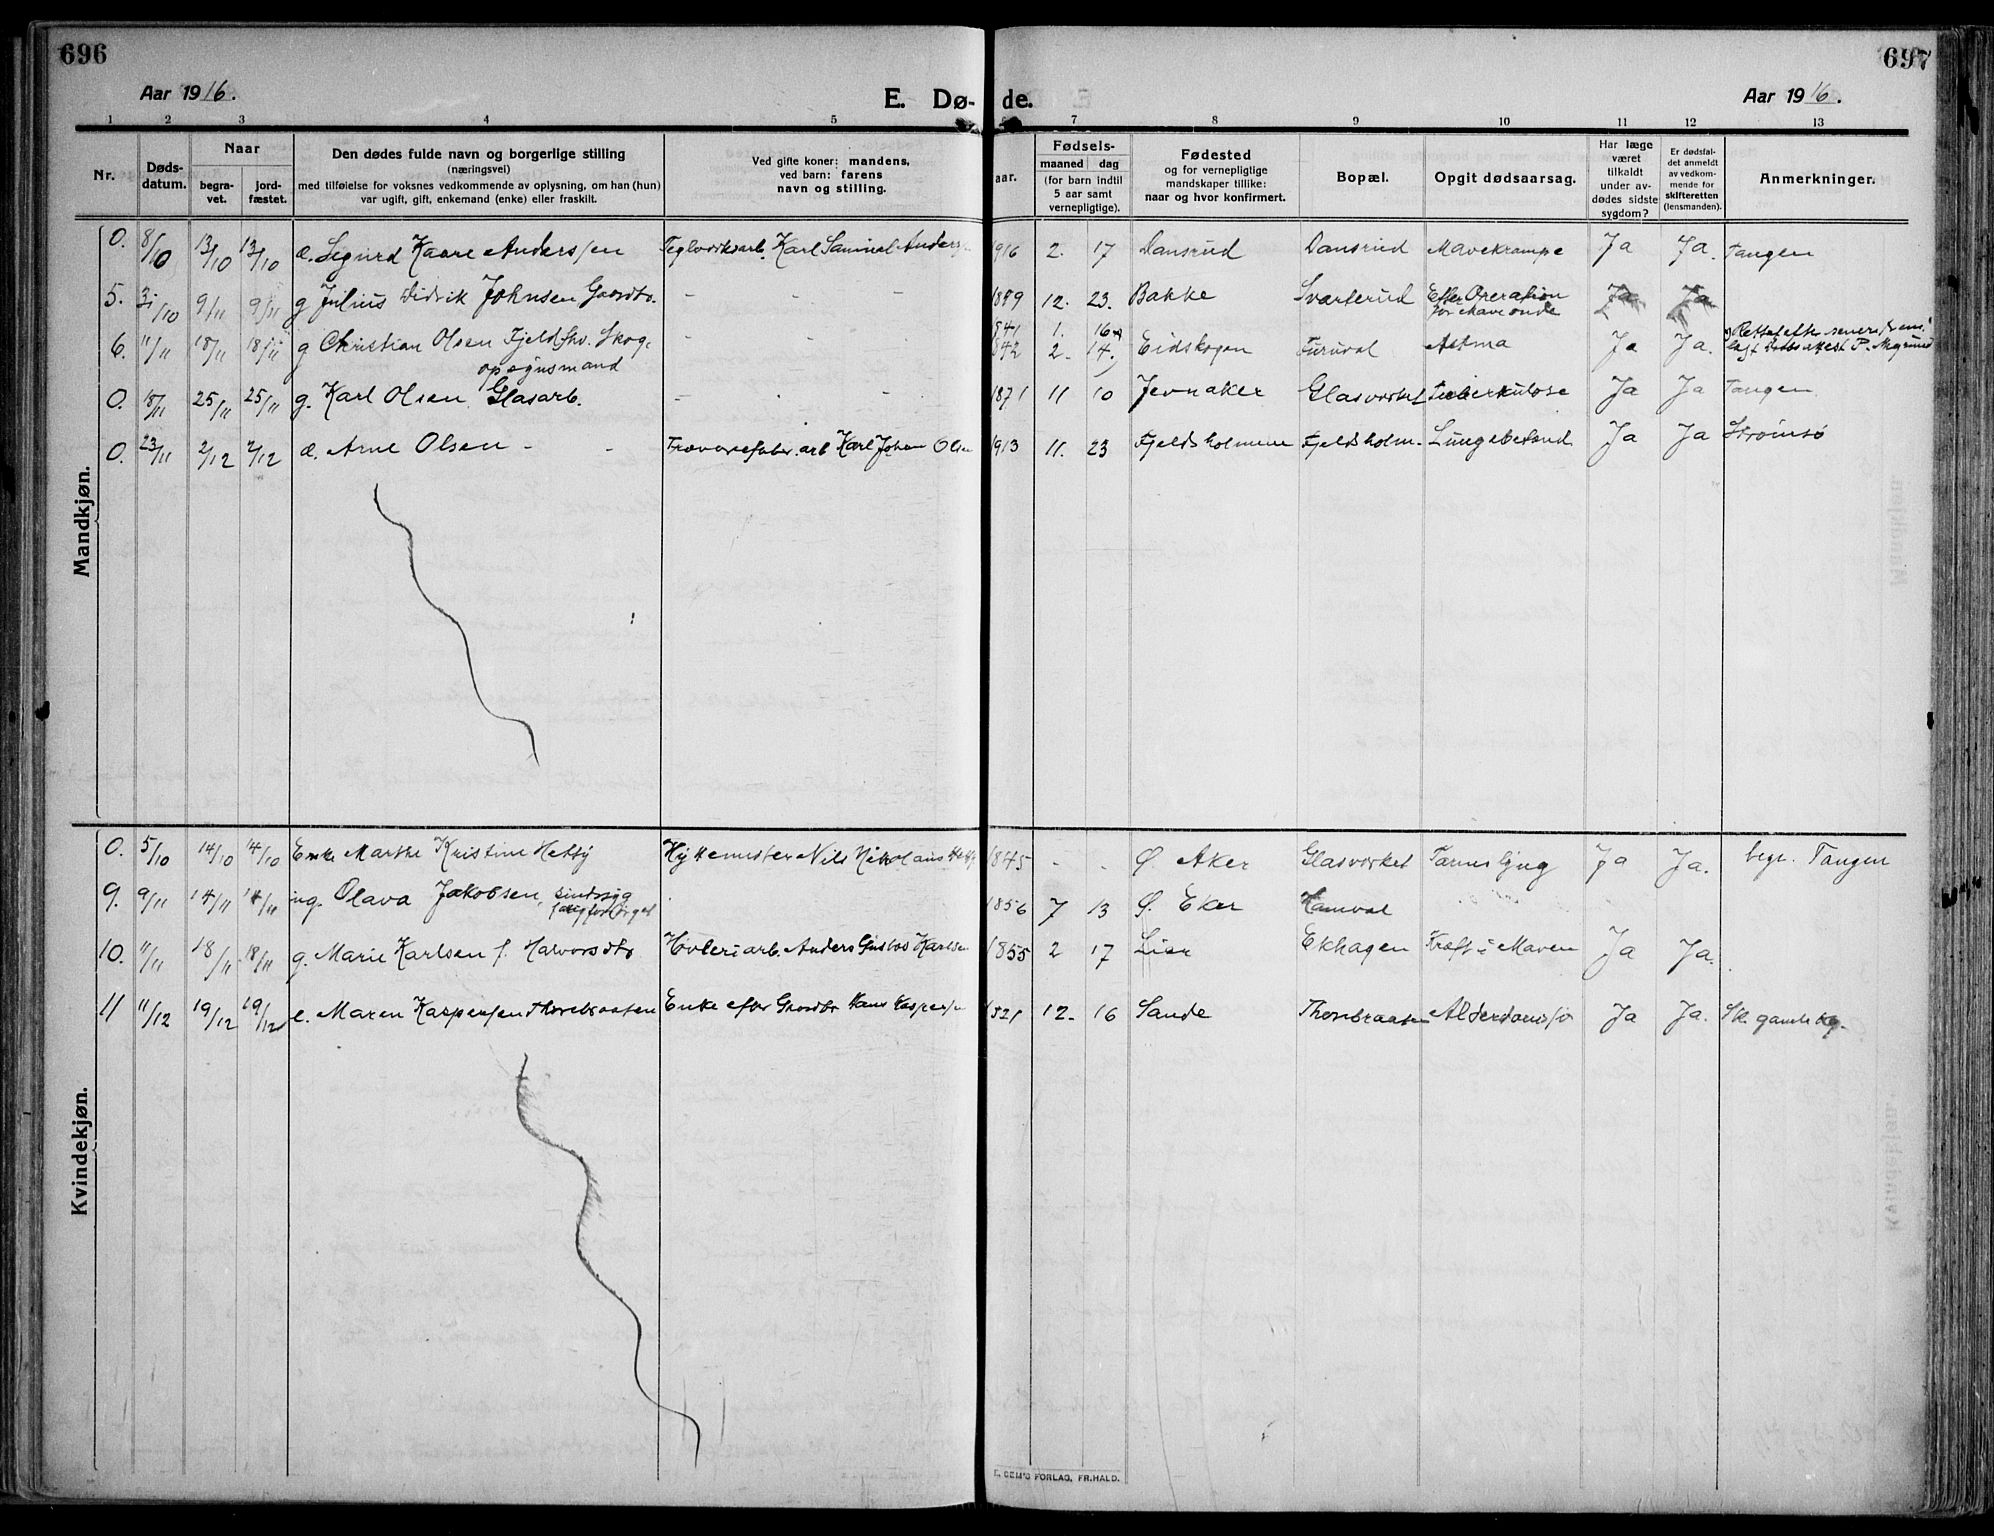 696
697
Aar 1916.
E. Dø-
de.
Aar 1916.
1 2 3 4 5 7 8 9 10 11 12 13
Nr.
Døds-
datum.
Naar
begra-
vet.
jord-
fæstet.
Den dødes fulde navn og borgerlige stilling
(næringsvei)
med tilføielse for voksnes vedkommende av oplysning, om han (hun)
var ugift, gift, enkemand (enke) eller fraskilt.
Ved gifte koner: mandens,
ved barn: farens
navn og stilling.
aar.
Fødsels-
maaned dag
(for barn indtil
5 aar samt
vernepligtige).
Fødested
og for vernepligtige
mandskaper tillike:
naar og hvor konfirmert.
Bopæl.
Opgit dødsaarsag.
Har læge
været
tilkaldt
under av-
dødes sidste
sygdom?
Er dødsfal-
det anmeldt
av vedkom-
mende for
skifteretten
(lensmanden).
Anmerkninger.
Mandkjøn.
0. 8/10 13/10 13/10 d. Sigurd Kaare Anderssen Teglverksarb. Karl Samuel 1916 2. 17 Dansrud Dansrud Mavekrampe Ja Ja. Tangen
5. 31/10 9/11 9/11 g Julius Didrik Johnsen Gaardbr. - - - 12. 23. Bakke Svarterud Efter Operation
for Mave onde Ja Ja
1841 1. 16
6. 11/11 18/11 18/11 g Christian Olsen Fjeld Skog- 1842 2. 14. Eidskogen Furuval Astma Ja Ja.
opsynsmand
0. 18/11 25/11 25/11 g. Karl Olsen Glasarb. - - - 1871 11 10 Jevnaker Glasverket Tuberkulose Ja Ja Tangen
0. 23/11 2/12 2/12 d. Arne Olsen - - Karl Johan Olsen 1913 11. 23 Fjeldsholmene Fjeldsholm. Lungebetænd Ja Ja Strømsø
Kvindekjøn.
0. 5/10 14/10 14/10 Enke Marthe Kristine Hyttemester Nils Nikolaus 1845 - - Ø Aker Glasverket Tarmslyng Ja Ja. begr. Tangen
9. 9/11 14/11 14/11 ug. Olava Jakobsen, sindssyg
1856 7 13 Ø. Eker
10. 11/11 18/11 18/11 g. Marie Karlsen f. Halvorsdtr Høvleriarb. Anders Gustav Karlsen 1855 2 17 Lier Ekhagen Kræft i Maven Ja Ja.
11 11/12 19/12 19/12 e. Maren Kaspersen Thorebraaten Enke efter Gaardbr Hans Kaspersen 1821 12. 16 Sande Thorebraaten Alderdomssl Ja Ja. Sk. gamle kg.
E. SEM'S FORLAG, FR.HALD.